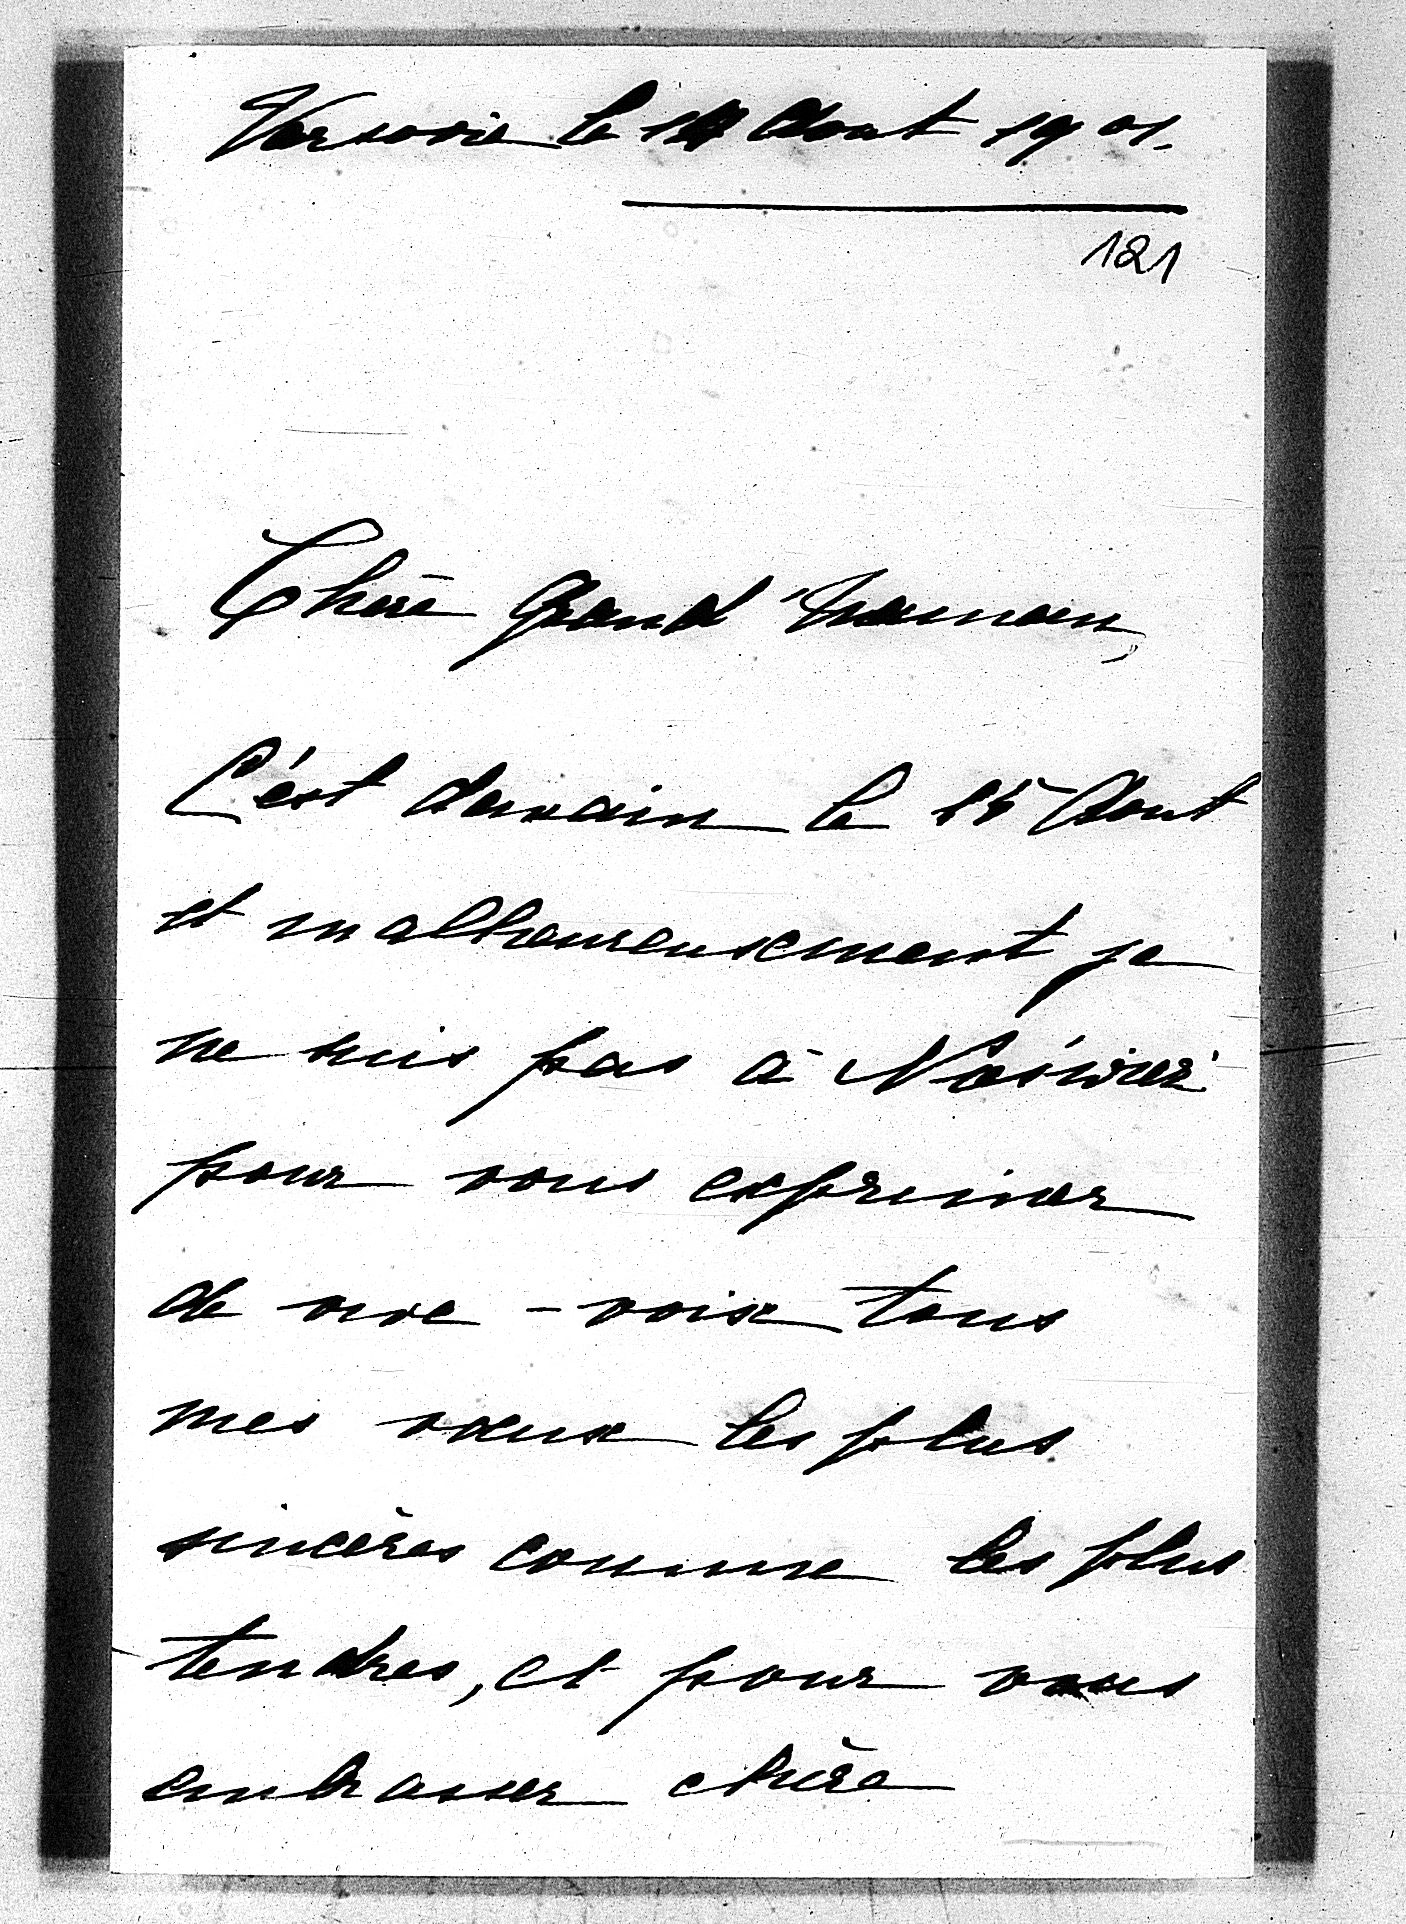 Varsovie le 14 Aout 1901.
121
Chère Grand'maman,
C'est demain le 15 Aout
et malheureusement je
ne suis pas à Nieśwież
pour vous exprimer
de vive-voix tous
mes vœux les plus
sincères comme les plus
tendres, et pour vous
embrasser chère